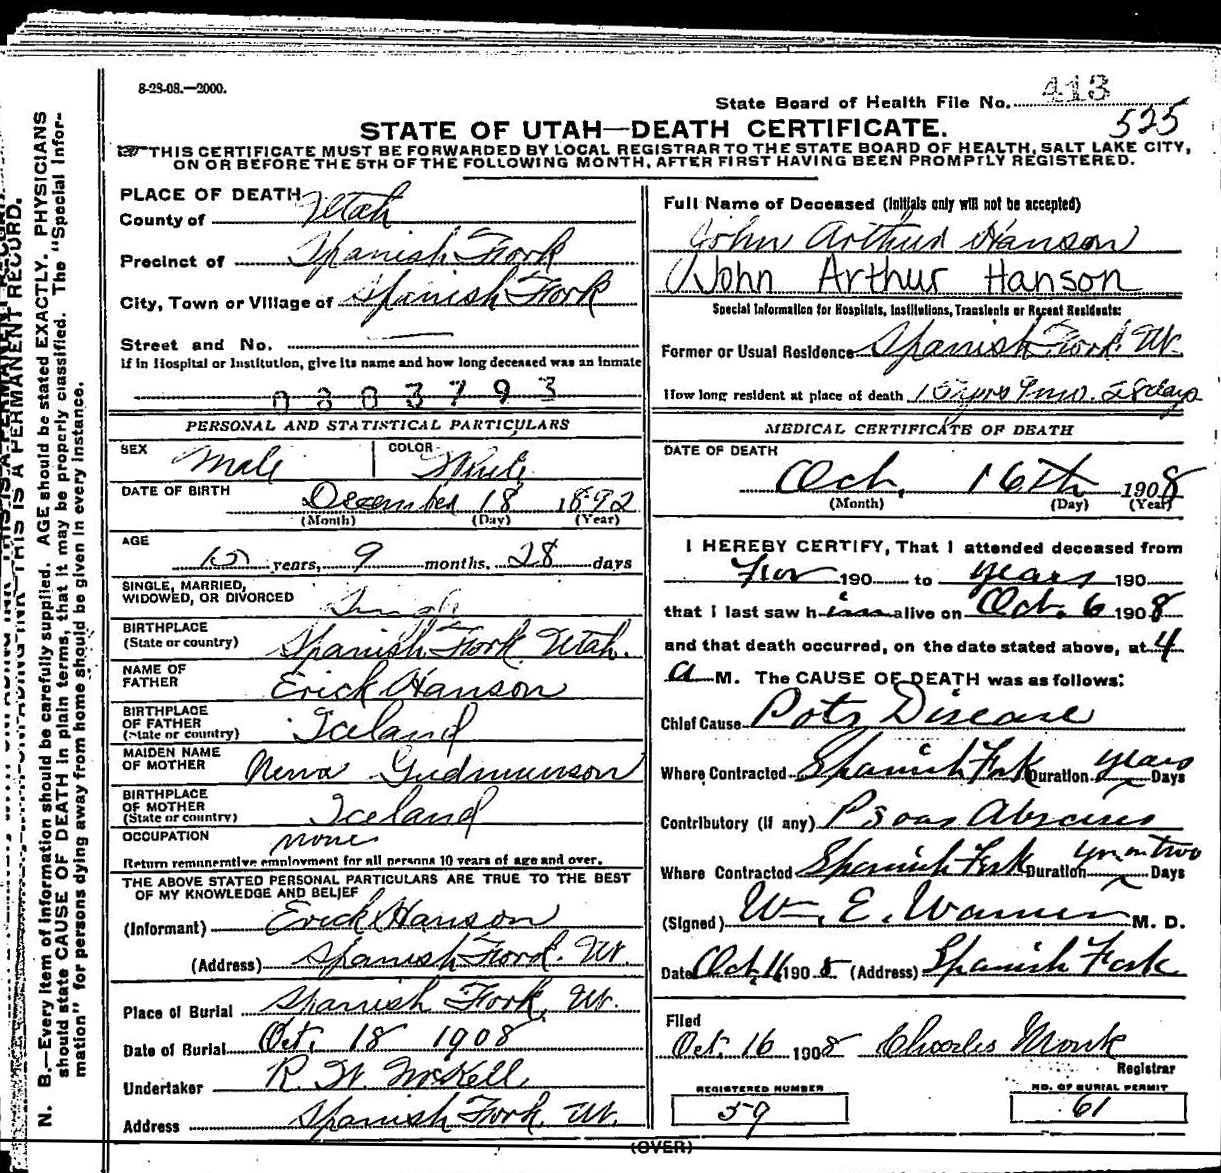 8-23-08.—2000.
State Board of Health File No. 413
525
STATE OF UTAH—DEATH CERTIFICATE.
THIS CERTIFICATE MUST BE FORWARDED BY LOCAL REGISTRAR TO THE STATE BOARD OF HEALTH, SALT LAKE CITY,
ON OR BEFORE THE 5TH OF THE FOLLOWING MONTH, AFTER FIRST HAVING BEEN PROMPTLY REGISTERED.
N. B.—Every item of information should be carefully supplied. AGE should be stated EXACTLY. PHYSICIANS
should state CAUSE OF DEATH in plain terms, that it may be properly classified. The "Special Infor-
mation" for persons dying away from home should be given in every instance.
THIS IS A PERMANENT RECORD.
PLACE OF DEATH
County of Utah
Precinct of Spanish Fork
City, Town or Village of Spanish Fork
Street and No.
If in Hospital or Institution, give its name and how long deceased was an inmate
0803793
PERSONAL AND STATISTICAL PARTICULARS
SEX Male COLOR White
DATE OF BIRTH
December 18 1892
(Month) (Day) (Year)
AGE
15 years, 9 months, 28 days
SINGLE, MARRIED,
WIDOWED, OR DIVORCED Single
BIRTHPLACE
(State or country) Spanish Fork Utah.
NAME OF
FATHER Erick Hanson
BIRTHPLACE
OF FATHER
(State or country) Iceland
MAIDEN NAME
OF MOTHER Gudmunson
BIRTHPLACE
OF MOTHER
(State or country) Iceland
OCCUPATION none
Return remunerative employment for all persons 10 years of age and over.
THE ABOVE STATED PERSONAL PARTICULARS ARE TRUE TO THE BEST
OF MY KNOWLEDGE AND BELIEF
(Informant) Erick Hanson
(Address) Spanish Fork. Ut.
Place of Burial Spanish Fork, Ut.
Date of Burial Oct. 18 1908
Undertaker R. W. McKell
Address Spanish Fork, Ut.
Full Name of Deceased (Initials only will not be accepted)
John Arthur Hanson
John Arthur Hanson
Special Information for Hospitals, Institutions, Transients or Recent Residents:
Former or Usual Residence Spanish Fork Ut.
How long resident at place of death 15 yrs 9 mo. 28 days
MEDICAL CERTIFICATE OF DEATH
DATE OF DEATH
Oct. 16th 1908
(Month) (Day) (Year)
I HEREBY CERTIFY, That I attended deceased from
For 190 to years 190
that I last saw him alive on Oct. 6 1908
and that death occurred, on the date stated above, at 4
a M. The CAUSE OF DEATH was as follows:
Chief Cause Pots Disease
Where Contracted Spanish Fork Duration years Days
Contributory (if any) Psoas Abscess
Where Contracted Spanish Fork Duration yr or two Days
(Signed) Wm. E. Warner M. D.
Date Oct 16 1908 (Address) Spanish Fork
Filed
Oct. 16 1908 Charles Monk
Registrar
REGISTERED NUMBER
59
NO. OF BURIAL PERMIT
61
(OVER)